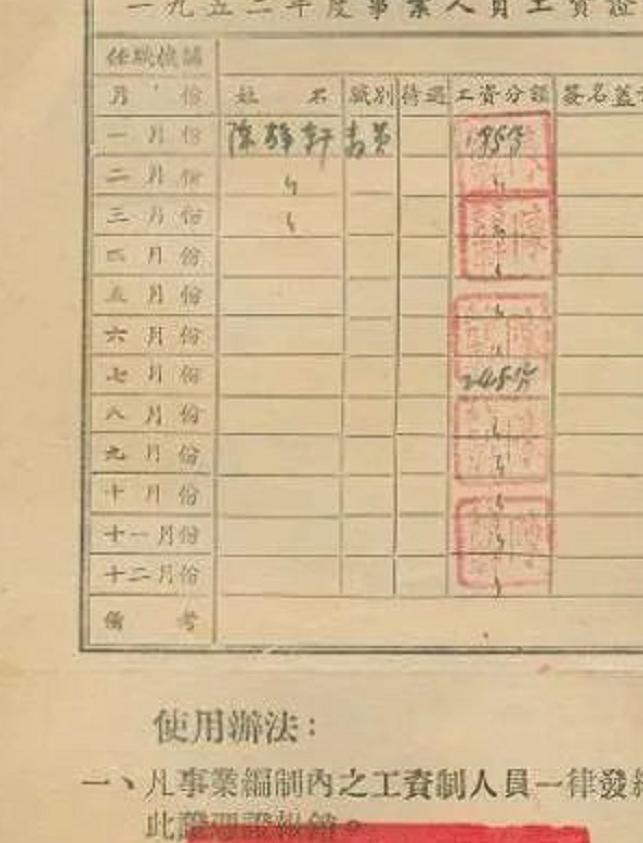 一九五二年度事業人員工資證
任職機講
月份 姓名 職別 待遇 工資分額 簽名蓋
一月份 陈 軒 教员 195分
二月份 〃 〃
三月份 〃 〃
四月份 〃
五月份 〃
六月份 〃
七月份 245分
八月份 〃
九月份 〃
十月份 〃
十一月份 〃
十二月份 〃
備考
使用辦法：
一、凡事業編制內之工資制人員一律發給
此證